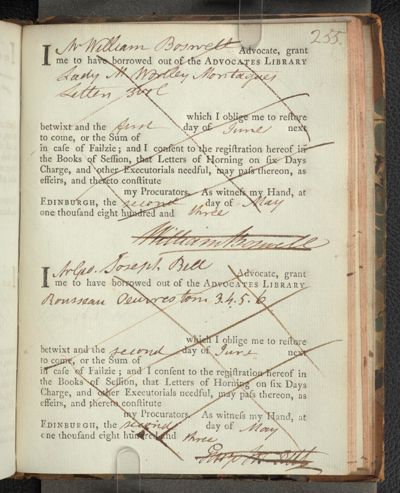 255.
I Mr William Boswell Advocate, grant
me to have borrowed out of the ADVOCATES LIBRARY
Lady M Wortley Montagues
Letters 3 vol
which I oblige me to restore
betwixt and the first day of June next
to come, or the Sum of
in case of Failzie; and I consent to the registration hereof in
the Books of Session, that Letters of Horning on six Days
Charge, and other Executorials needful, may pass thereon, as
effeirs, and thereto constitute
my Procurators. As witness my Hand, at
EDINBURGH, the second day of May
one thousand eight hundred and three
William Boswell
I Mr Geo. Joseph Bell Advocate, grant
me to have borrowed out of the ADVOCATES LIBRARY
Rousseau Oeuvres tom 3. 4. 5. 6
which I oblige me to restore
betwixt and the second day of June next
to come, or the Sum of
in case of Failzie; and I consent to the registration hereof in
the Books of Session, that Letters of Horning on six Days
Charge, and other Executorials needful, may pass thereon, as
effeirs, and thereto constitute
my Procurators. As witness my Hand, at
EDINBURGH, the second day of May
one thousand eight hundred and three